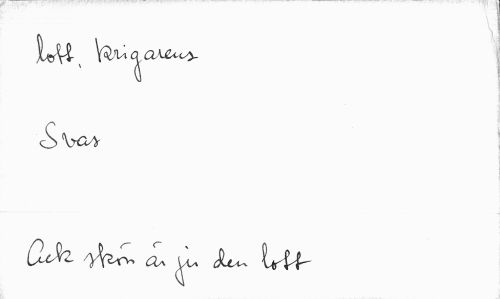 lott, krigarens
Svas
Ack skön är ju den lott